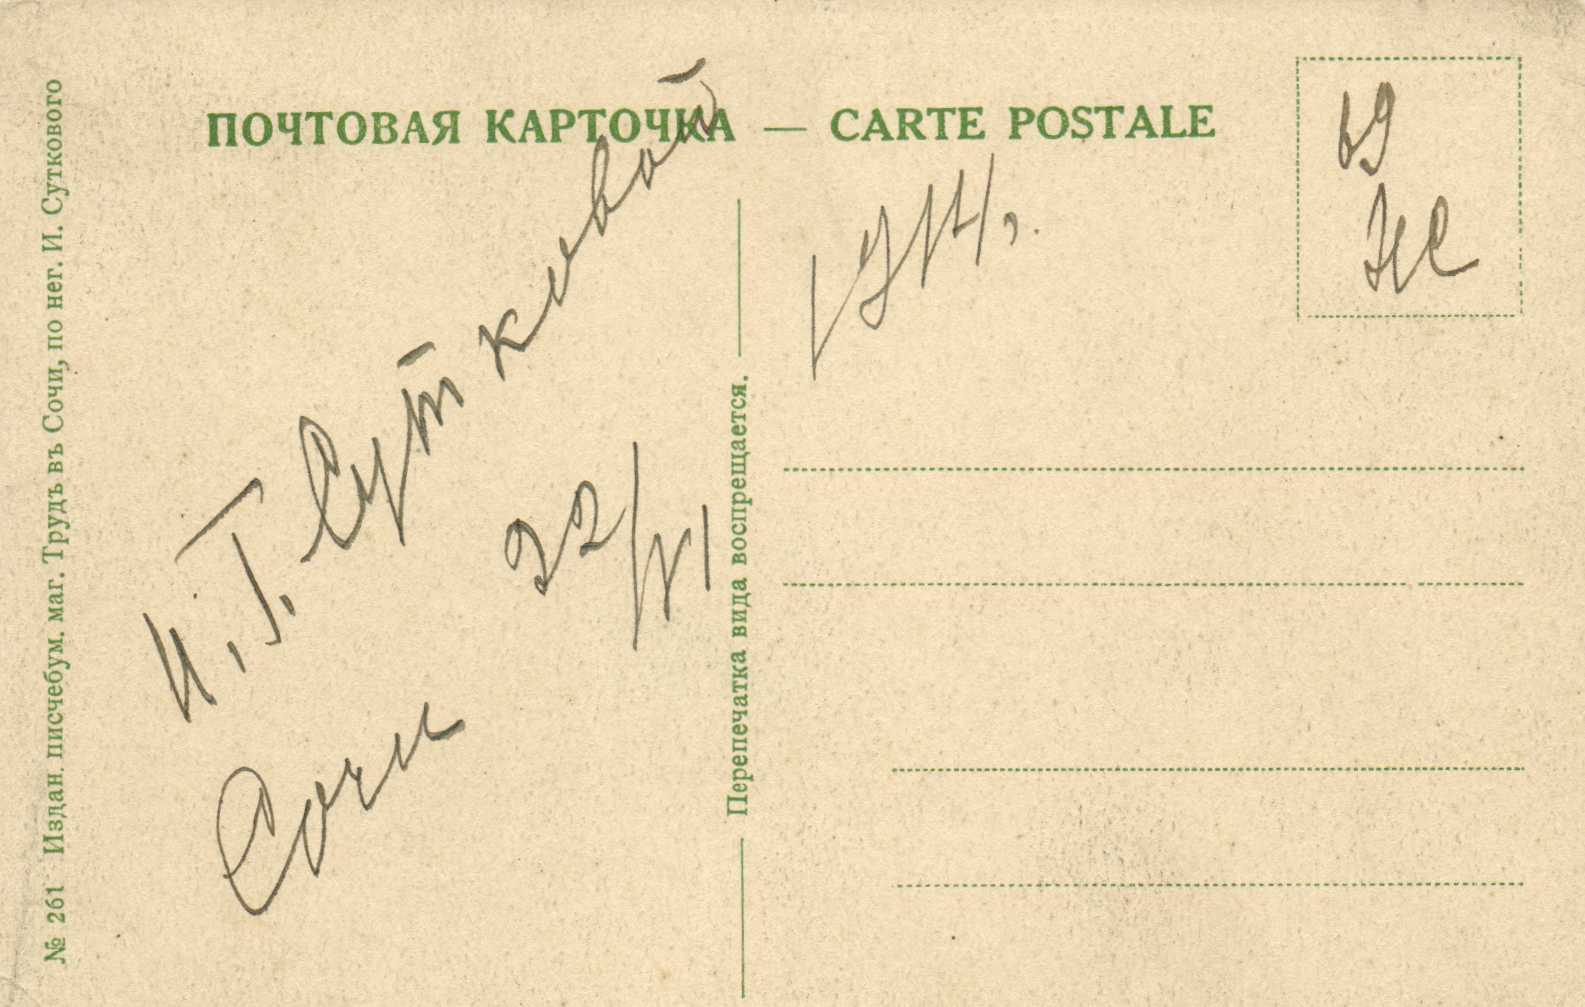 ПОЧТОВАЯ КАРТОЧКА — CARTE POSTALE
№ 261 Издан. писчебум. маг. Трудъ въ Сочи, по нег. И. Суткового
Перепечатка вида воспрещается.
И. Г. Сутковой
Сочи
22/VI
1914,